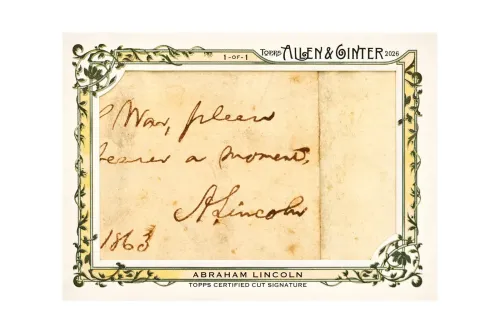 1-OF-1
TOPPS ALLEN & GINTER 2026
War, please
a moment,
A Lincoln
1863
ABRAHAM LINCOLN
TOPPS CERTIFIED CUT SIGNATURE